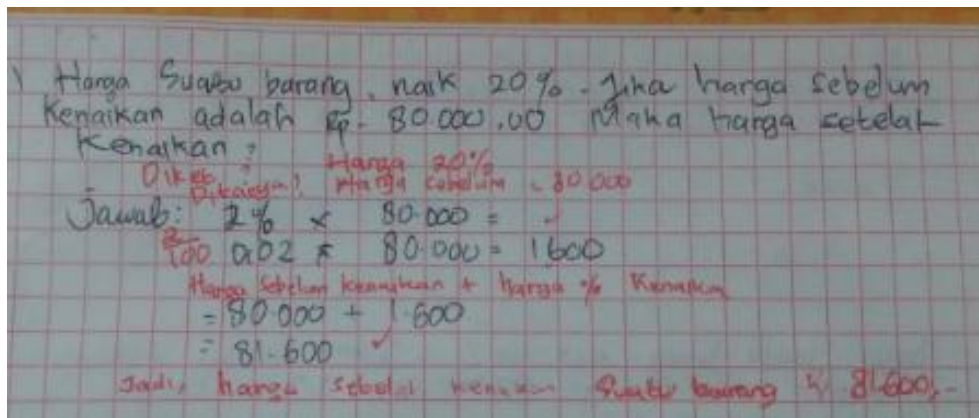 Harga Suatu barang naik 20%. Jika harga sebelum
Kenaikan adalah Rp. 80.000,00 Maka harga setelah
Kenaikan?
Harga 20%
Harga sebelum = 80.000
Jawab: 2% x 80.000 =
2/100 0,02 x 80.000 = 1600
Harga sebelum kenaikan + harga % Kenaikan
= 80.000 + 1.600
= 81.600
Jadi, harga kenaikan Suatu barang 81.600,-